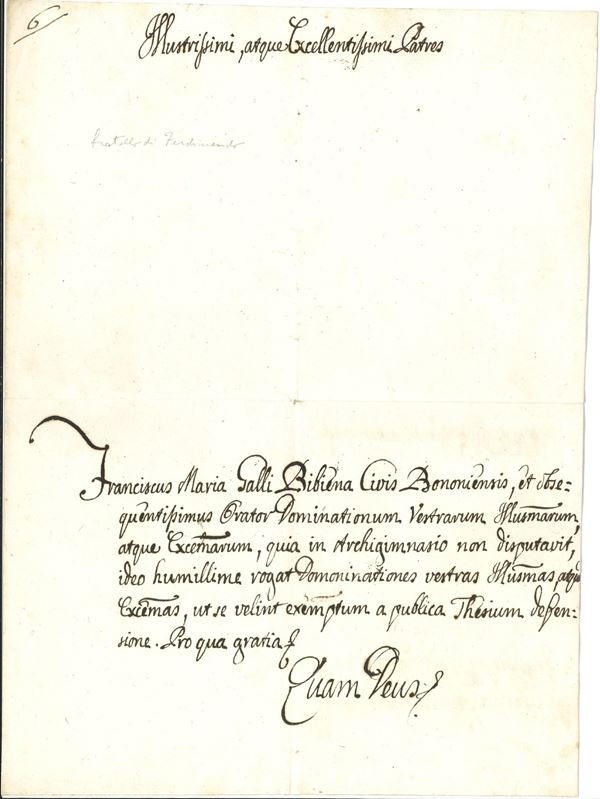 6
Illustrissimi, atque Excellentissimi Patres
fratello di Ferdinando
Franciscus Maria Galli Bibiena Civis Bononiensis, et obse=
quentissimus Orator Dominationum Vestrarum Illusm̄arum,
atque Excem̄arum, quia in Archigimnasio non disputavit,
ideo humillime rogat Domoninationes vestras Illusm̄as, atque
Excem̄as, ut se velint exemptum a publica Thesium deffen=
sione. Pro qua gratia
Quam Deus